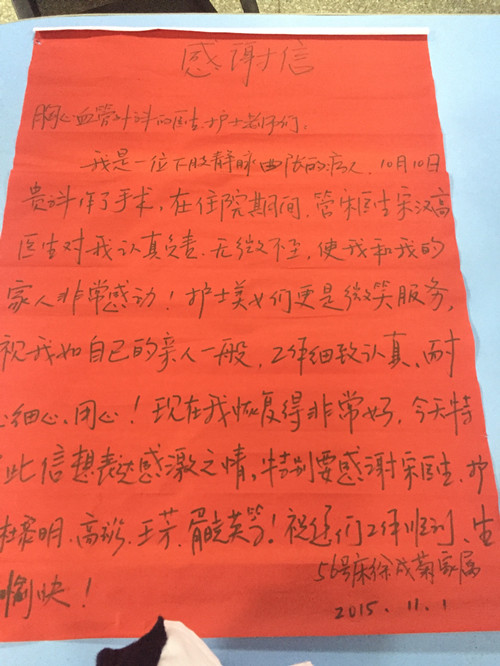 感谢信
胸心血管外科的医生、护士老师们:
我是一位下肢静脉曲张的病人,10月10日
贵科作了手术,在住院期间,管床医生宋汉高
医生对我认真负责.无微不至,使我和我的
家人非常感动!护士美女们更是微笑服务,
视我如自己的亲人一般,工作细致认真、耐
心细心、用心!现在我恢复得非常好,今天特
此信想表达感激之情,特别要感谢宋医生.护
明、高 、王芳、 英等!祝你们工作顺利、生
愉快!
56号床徐成菊家属
2015.11.1